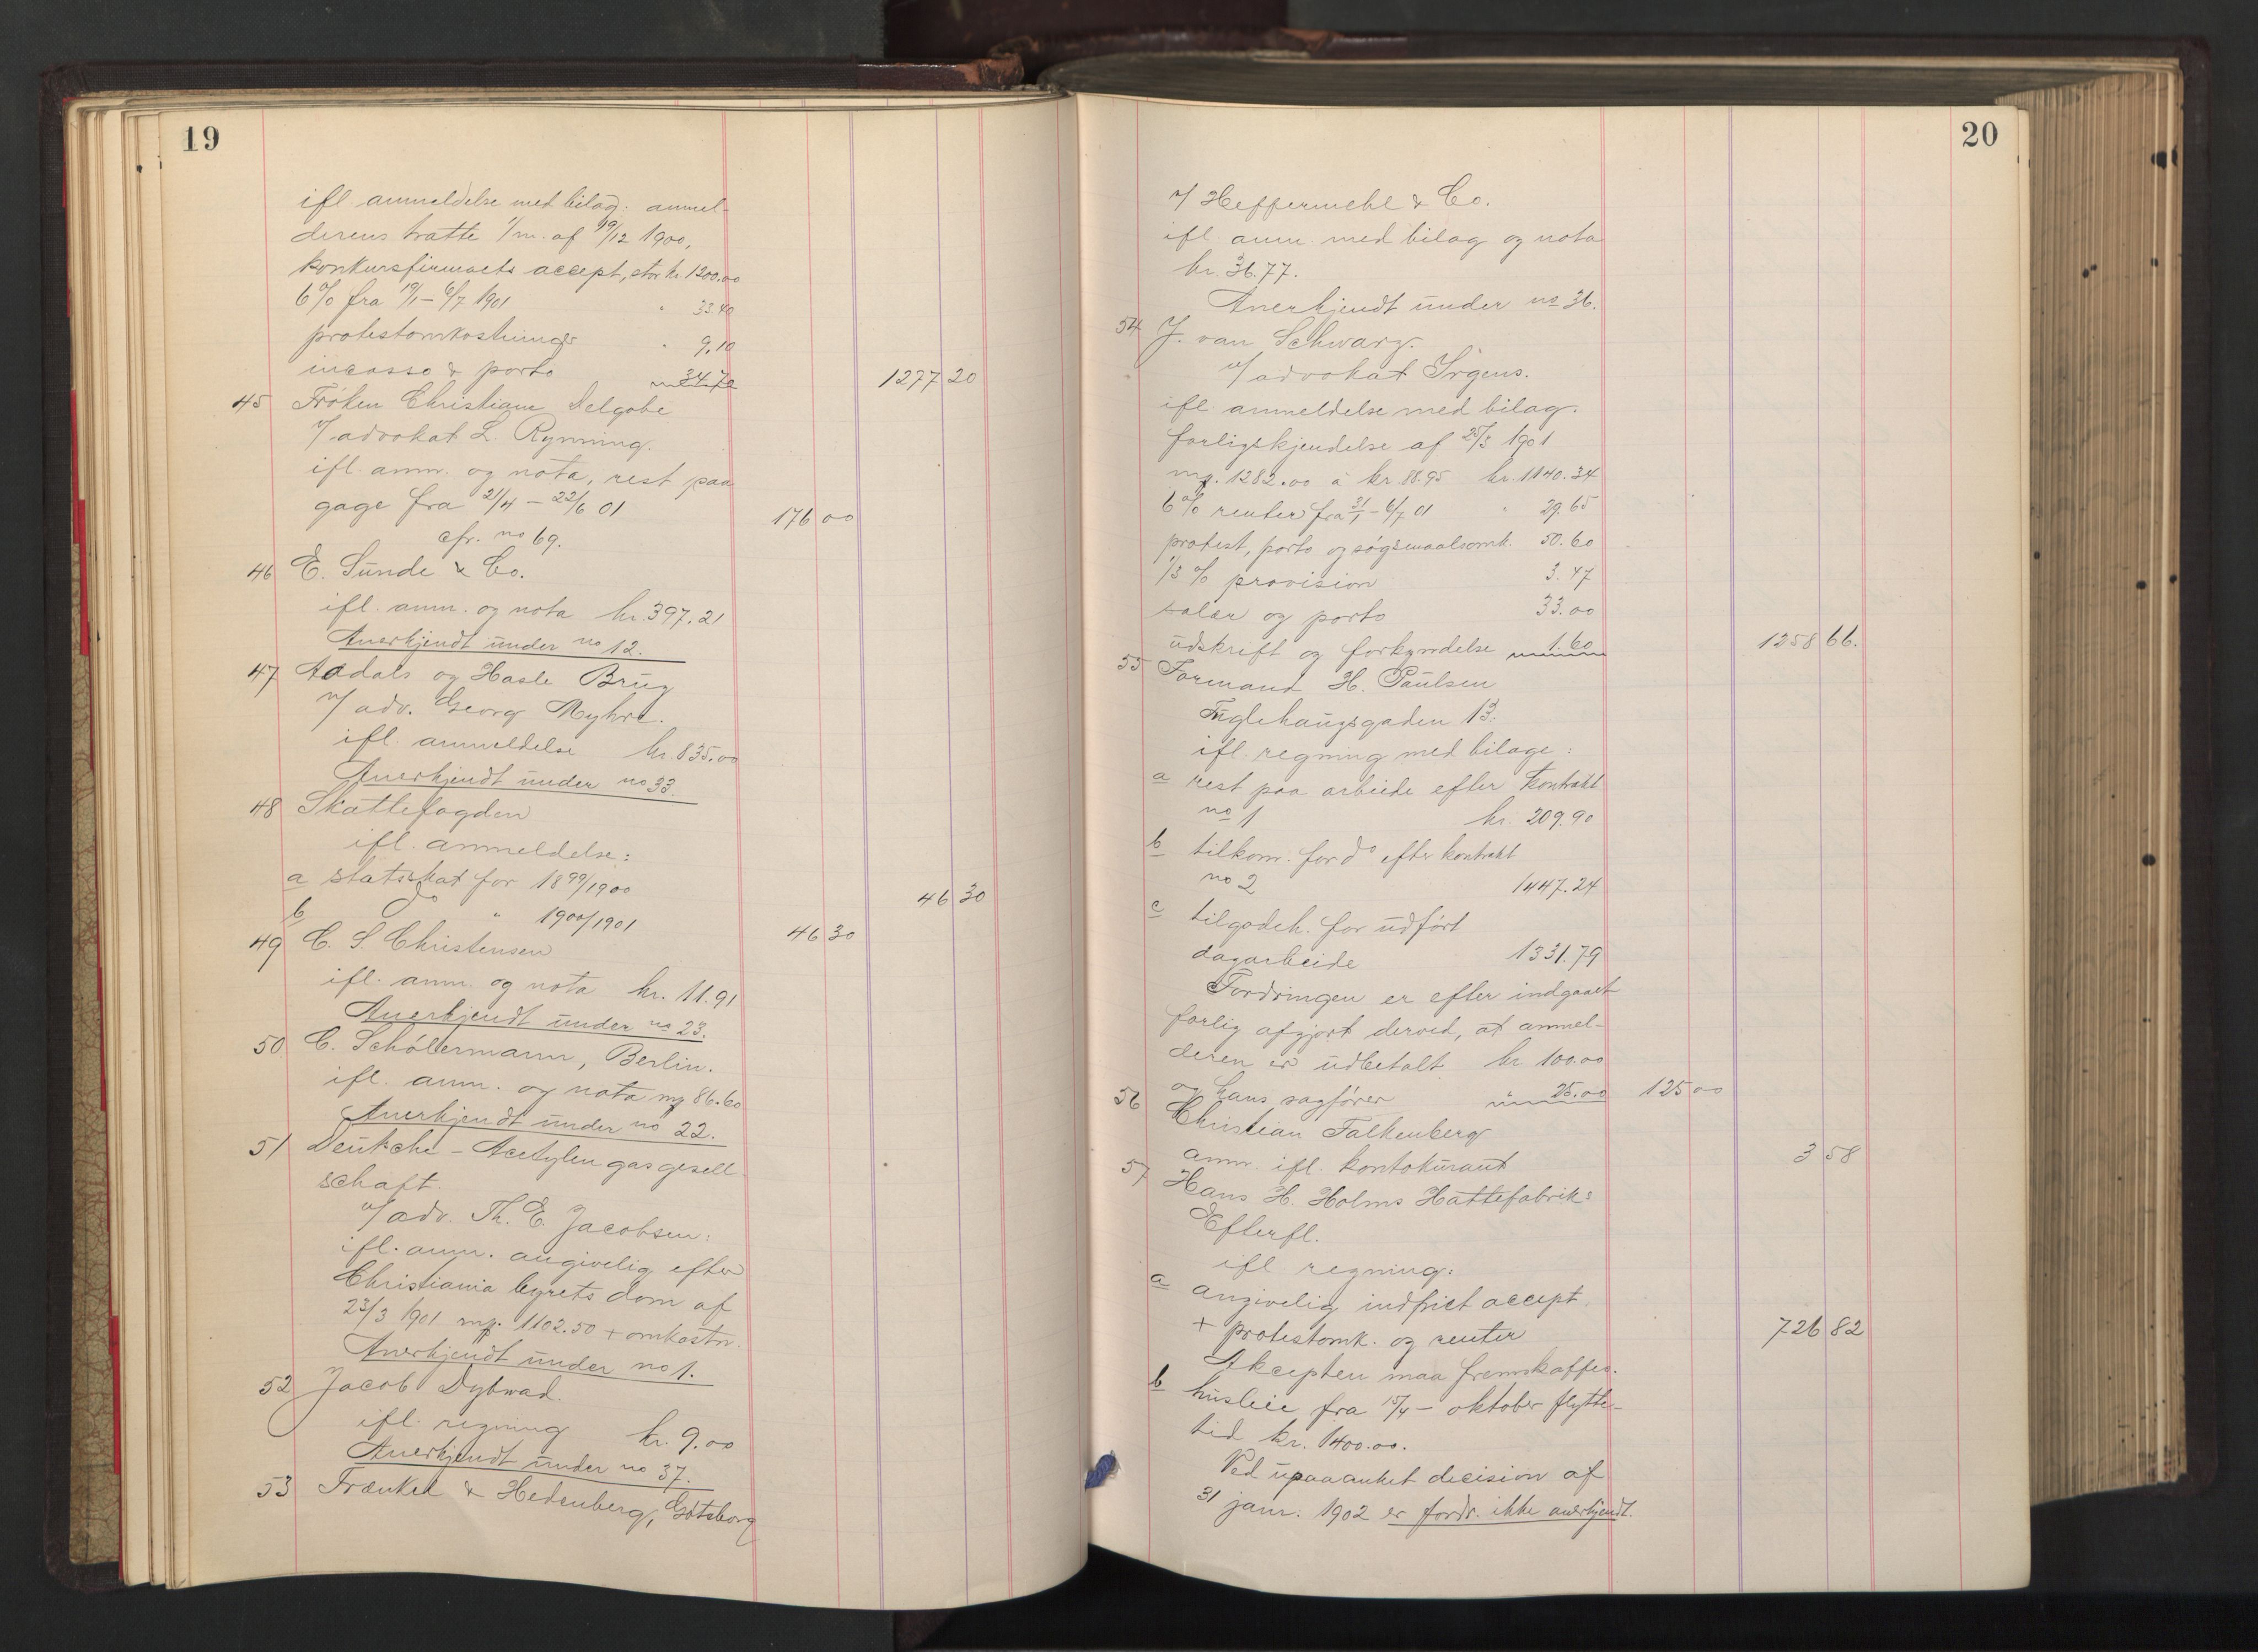 19
ifl. anmeldelse med bilag: anmel-
derens tratte 1/m. af 19/12 1900,
konkursfirmaets accept, stor kr. 1200.00
6% fra 19/1 - 6/7 1901 " 33.40
protestomkostninger " 9.10
incasso & porto 34.70 1277 20
45 Frøken Christiane Delgobe
v/ advokat L. Rynning.
ifl. anm. og nota, rest paa
gage fra 21/4 - 22/6 01 176 00
cfr. no 69.
46 E. Sunde & Co.
ifl. anm. og nota kr. 397.21
Anerkjendt under no 12.
47 Aadals og Hasle Brug
v/ adv. Georg Myhre.
ifl. anmeldelse kr. 835.00
Anerkjendt under no 33.
48 Skattefogden
ifl. anmeldelse:
a statsskat for 1899/1900 46 30
b do " 1900/1901 46 30
49 C. S. Christensen
ifl. anm. og nota kr. 11.91
Anerkjendt under no 23.
50 C. Schöllermann, Berlin.
ifl. anm. og nota mp 86.60
Anerkjendt under no 22.
51 Deutsche-Acetylen gas gesell
schaft.
v/ adv. Th. E. Jacobsen:
ifl. anm. angivelig efter
Christiania byrets dom af
23/3 1901 mp. 1102.50 + omkostn.
Anerkjendt under no 1.
52 Jacob Dybwad.
ifl. regning kr. 9.00
Anerkjendt under no 37.
53 Frænkel & Hedenberg, Gøteborg
20
v/ Heffermehl & Co.
ifl. anm. med bilag og nota
kr. 36.77.
Anerkjendt under no 36.
54 J. van Schwarz.
v/ advokat Irgens.
ifl. anmeldelse med bilag.
forligskjendelse af 25/3 1901
mp. 1282.00 à kr. 88.95 kr. 1140.34
6% renter fra 31/1 - 6/7 01 " 29.65
protest, porto og søgsmaalsomk. 50.60
1/3 % provision 3.47
salær og porto 33.00
udskrift og forkyndelse 1.60 1258 66.
55 Formand H. Paulsen
Fuglehaugsgaden 13.
ifl. regning med bilage:
a rest paa arbeide efter kontrakt
no 1 kr. 209.90
b tilkom. for do efter kontrakt
no 2 1447.24
c tilgodeh. for udført
dagarbeide 1331.79
Fordringen er efter indgaaet
forlig afgjort derved, at anmel-
deren er udbetalt kr 100.00
og hans sagfører " 25.00 125 00
56 Christian Falkenberg
anm. ifl. kontokurant 3 58
57 Hans H. Holms Hattefabriks
Efterfl.
ifl regning:
a angivelig indfriet accept
+ protestomk. og renter 726 82
Akcepten maa fremskaffes.
b husleie fra 15/4 - oktober flytte-
tid kr. 1400.00.
Ved upaaanket decision af
31 janr. 1902 er fordr. ikke anerkjendt.